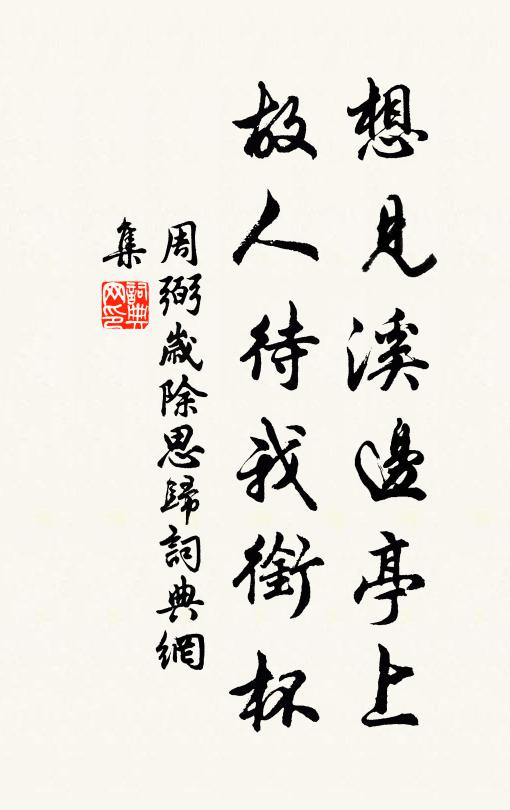 想見溪邊亭上
故人待我銜杯
周弼歲除思歸詞典網
集
詞典網印